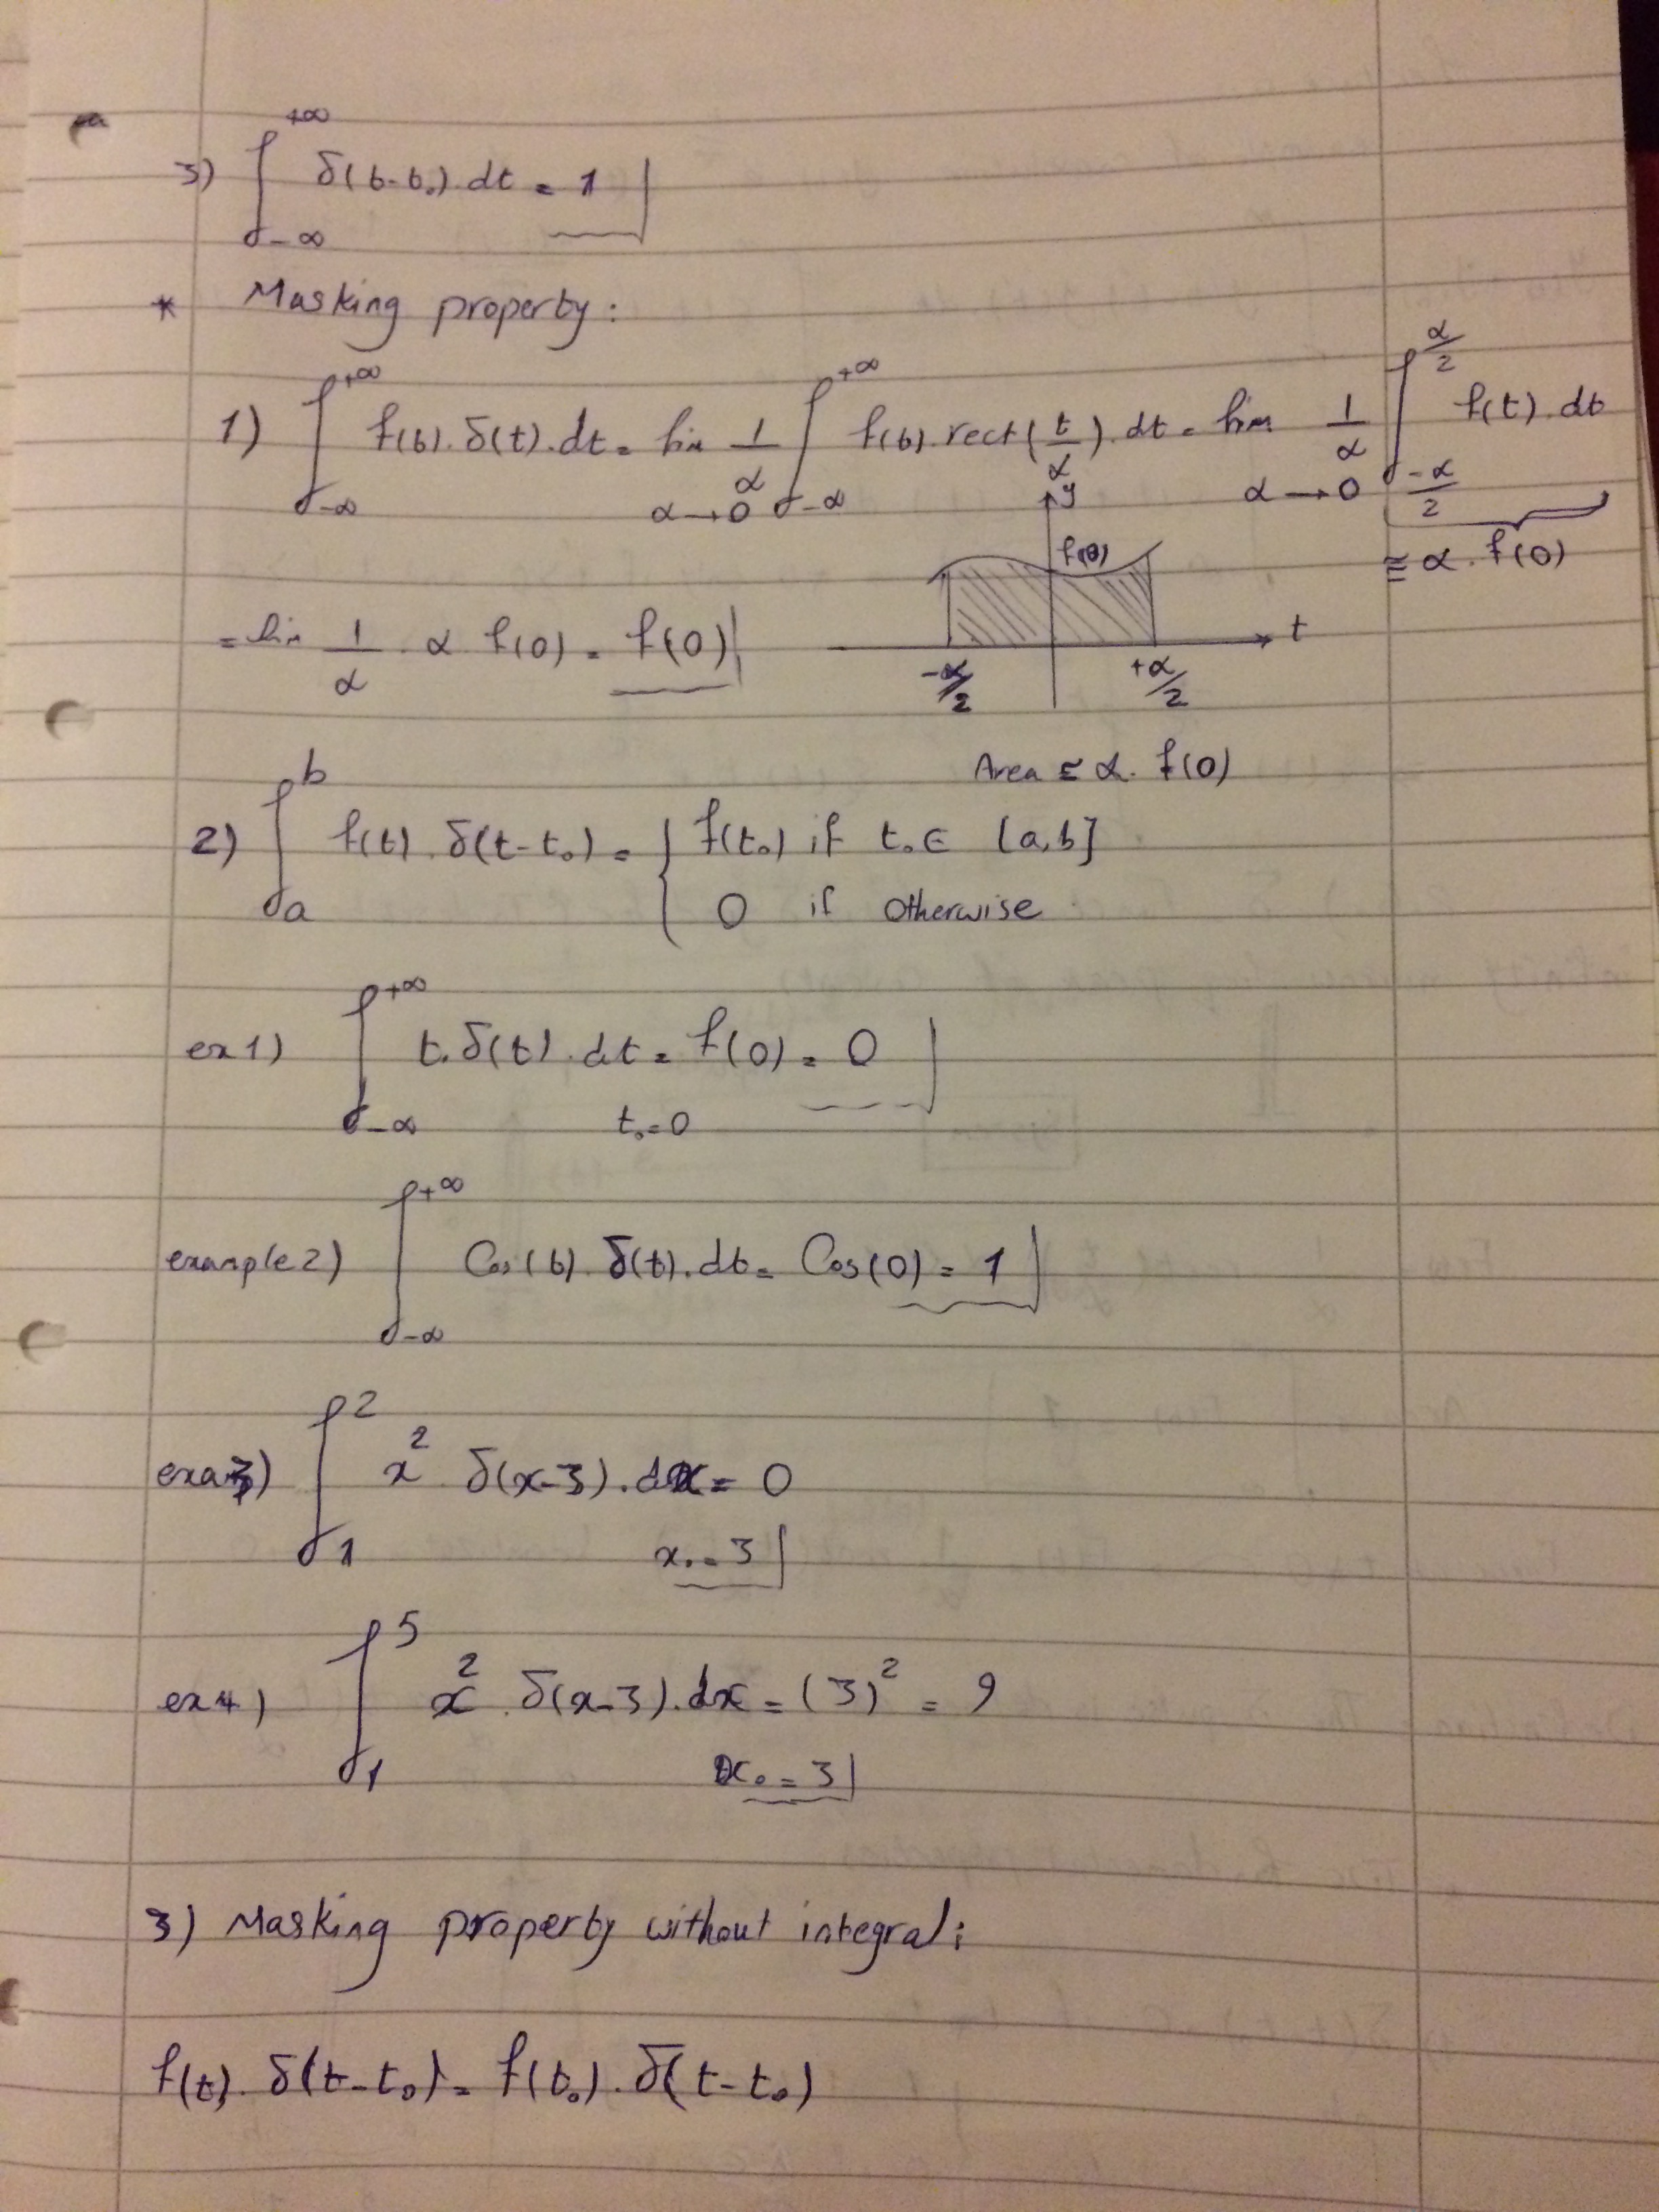 3) ∫_{-∞}^{+∞} δ(t-t₀).dt = 1
* Masking property:
1) ∫_{-∞}^{+∞} f(t).δ(t).dt = lim_{α→0} 1/α ∫_{-∞}^{+∞} f(t).rect(t/α).dt = lim_{α→0} 1/α ∫_{-α/2}^{α/2} f(t).dt
≅ α.f(0)
y
f(0)
= lim 1/α . α f(0) = f(0)
t
-α/2 +α/2
Area ≅ α.f(0)
2) ∫_a^b f(t).δ(t-t₀) = { f(t₀) if t₀ ∈ [a,b]
0 if otherwise
ex1) ∫_{-∞}^{+∞} t.δ(t).dt = f(0) = 0
t₀=0
example2) ∫_{-∞}^{+∞} Cos(t).δ(t).dt = Cos(0) = 1
exa3) ∫_1^2 x² δ(x-3).dx = 0
x₀=3
ex4) ∫_1^5 x².δ(x-3).dx = (3)² = 9
x₀=3
3) Masking property without integral:
f(t).δ(t-t₀) = f(t₀).δ(t-t₀)